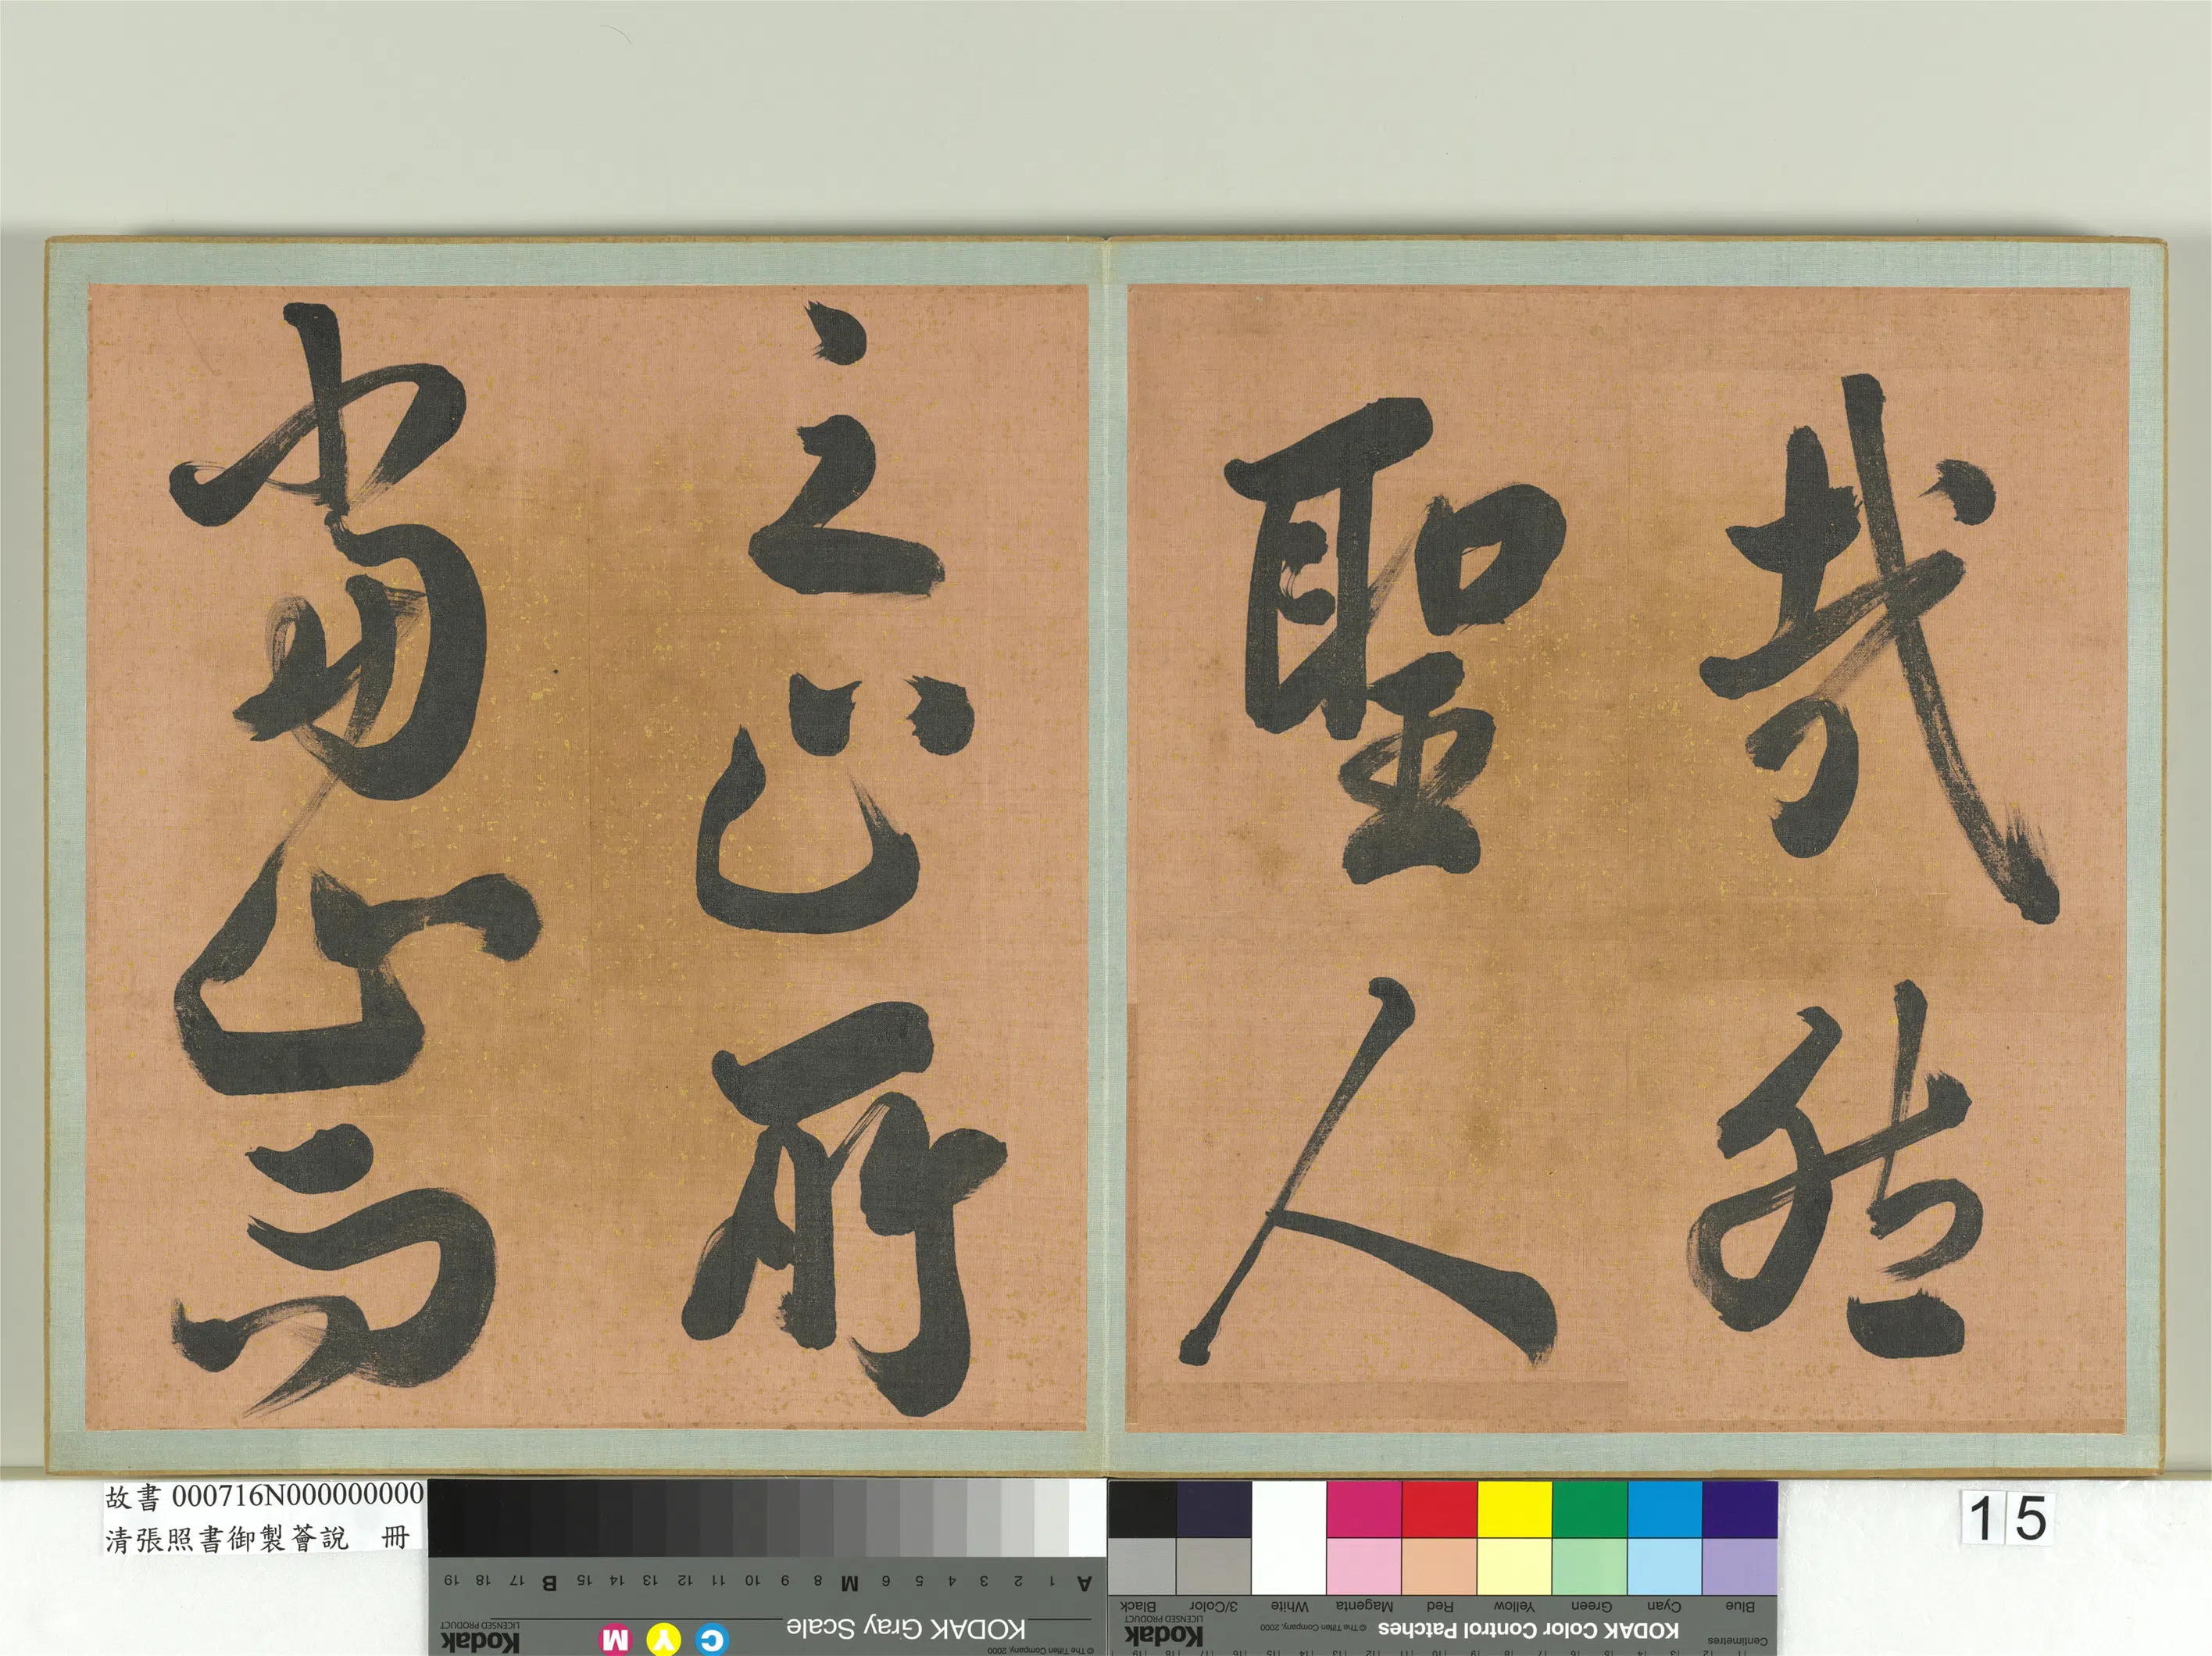 哉然
聖人
之心所
當止而
15
故書 000716N000000000
清張照書御製薈說 冊
KODAK Gray Scale
© The Tiffen Company, 2000
Kodak
LICENSED PRODUCT
C Y M
A 1 2 3 4 5 6 M 8 9 10 11 12 13 14 15 B 17 18 19
KODAK Color Control Patches
© The Tiffen Company, 2000
Kodak
LICENSED PRODUCT
Centimetres
Blue Cyan Green Yellow Red Magenta White 3/Color Black